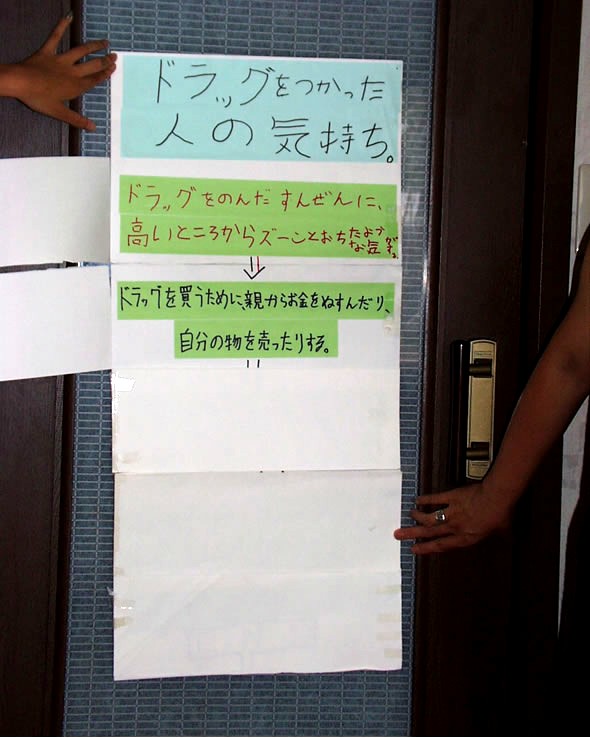 ドラッグをつかった
人の気持ち。
ドラッグをのんだすんぜんに、
高いところからズーンとおちたような気がする。
ドラッグを買うために、親からお金をぬすんだり、
自分の物を売ったりする。